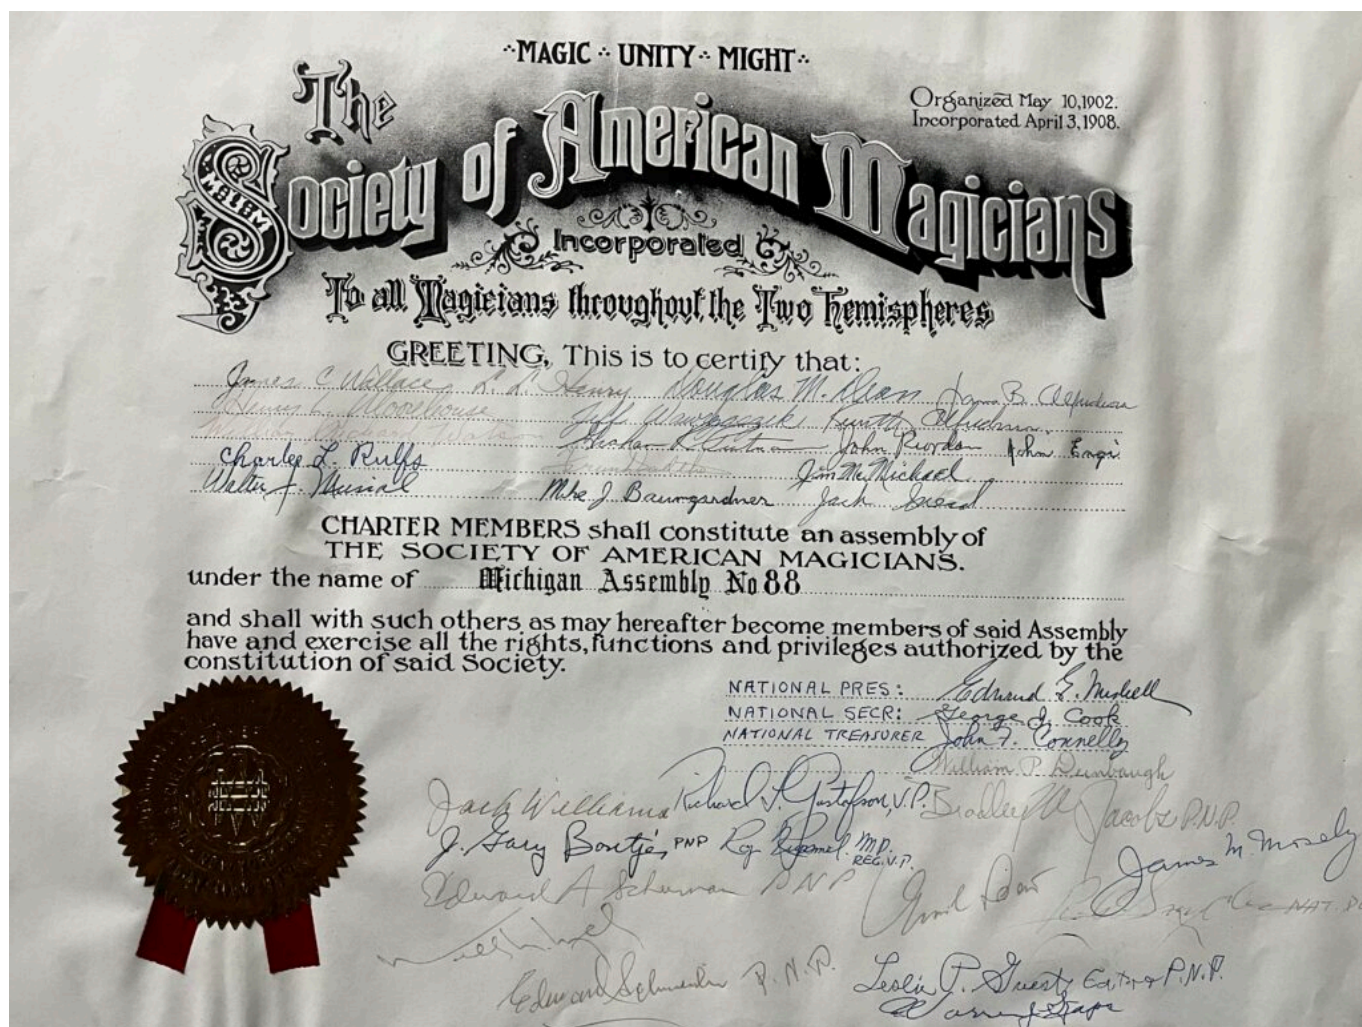 MAGIC UNITY MIGHT
Organized May 10, 1902.
Incorporated April 3, 1908.
The
Society of American Magicians
M-U-M
Incorporated
To all Magicians throughout the Two Hemispheres
GREETING, This is to certify that:
James C Wallace L. L. Henry Douglas M. Dean James B.
Dennis L. Moorehouse Jeff Kurtis
William Watson Graham R. John Riordan John
Charles L. Rulfs Jim McMichael
Walter J. Musial Mike J. Baumgardner Jack
CHARTER MEMBERS shall constitute an assembly of
THE SOCIETY OF AMERICAN MAGICIANS.
under the name of Michigan Assembly No 88
and shall with such others as may hereafter become members of said Assembly
have and exercise all the rights, functions and privileges authorized by the
constitution of said Society.
NATIONAL PRES: Edmund E.
NATIONAL SECR: George J. Cook
NATIONAL TREASURER John F. Connelly
William P.
Jack Williams Richard J. Gustafson, V.P. Bradley M Jacobs P.N.P.
J. Gary Bontjes PNP Roy MD. REG. V.P. James M. Mosely
Edward A PNP NAT. D
Edward P.N.P. Leslie P. Guest, Editor P.N.P.
Warren